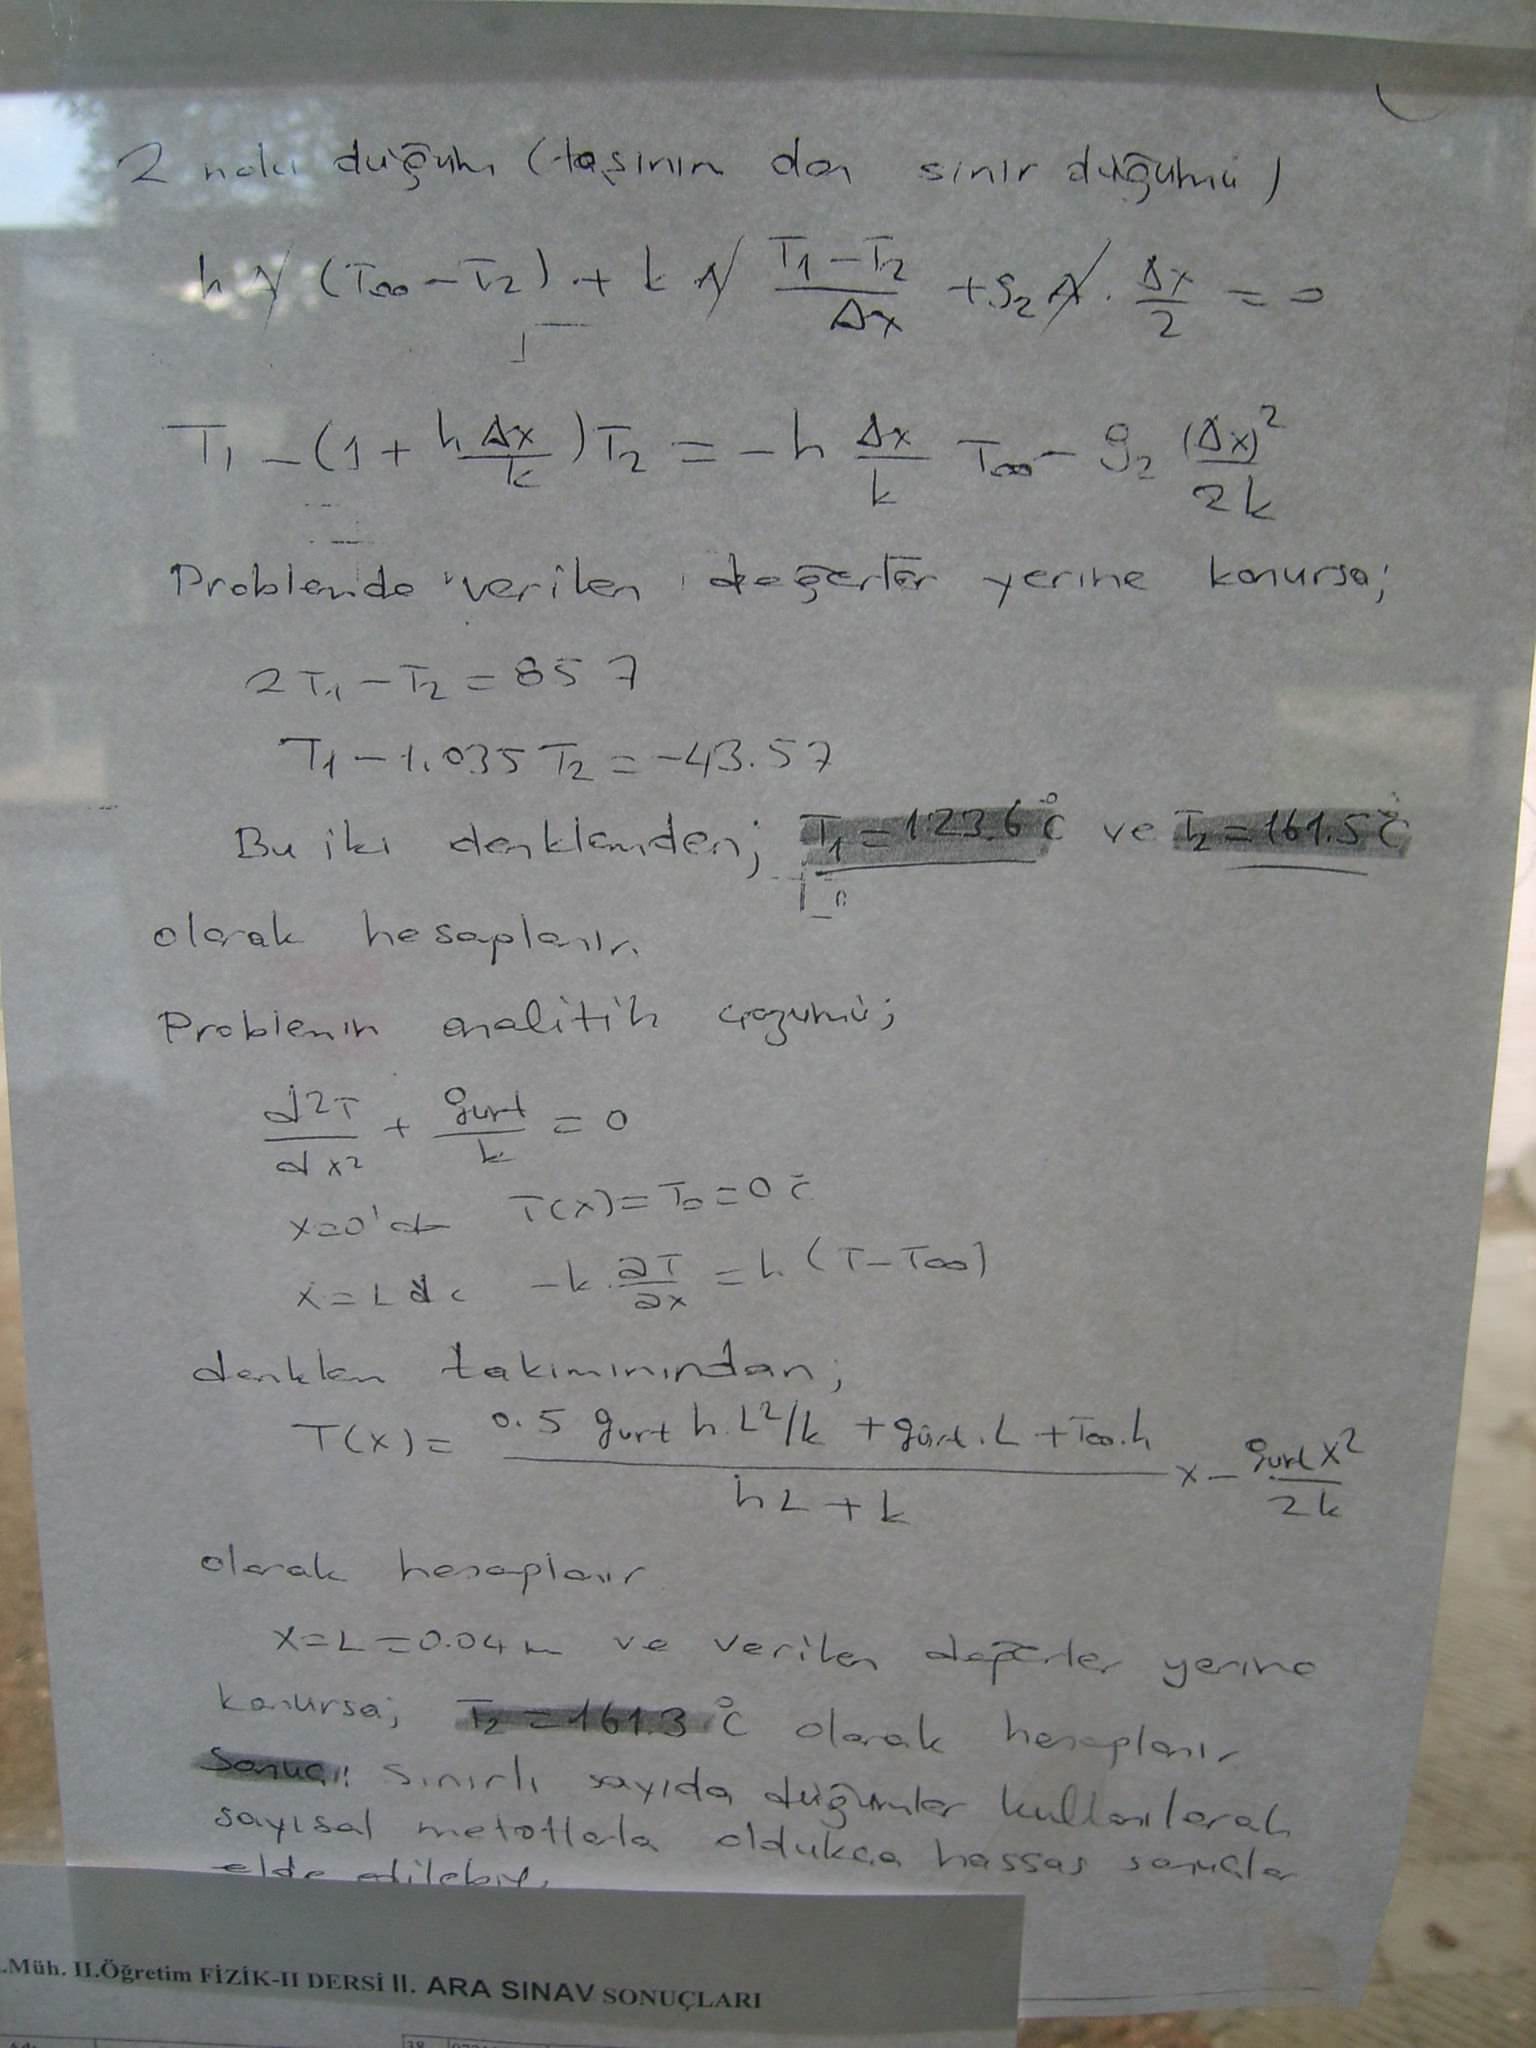 2 nolu düğüm (taşınım dan sınır düğümü)
h A (T∞ - T2) + k A (T1 - T2)/Δx + ġ2 A . Δx/2 = 0
T1 - (1 + h Δx/k) T2 = -h Δx/k T∞ - ġ2 (Δx)²/2k
Problemde verilen değerler yerine konursa;
2T1 - T2 = 85 7
T1 - 1.035 T2 = -43.57
Bu iki denklemden; T1 = 123.6 °C ve T2 = 161.5 °C
olarak hesaplanır.
Problemin analitik çözümü;
d2T/dx2 + ġürt/k = 0
x=0'da T(x) = T0 = 0 °C
x=L de -k . ∂T/∂x = h. (T - T∞)
denklem takımınından;
T(x) = (0.5 ġürt h.L²/k + ġürt.L + T∞.h)/(hL + k) x - ġürt x²/2k
olarak hesaplanır
x=L=0.04 m ve verilen değerler yerine
konursa; T2 = 161.3 °C olarak hesaplanır
Sonuç: Sınırlı sayıda düğümler kullanılarak
sayısal metotlarla oldukça hassas sonuçlar
elde edilebilir.
.Müh. II.Öğretim FİZİK-II DERSİ II. ARA SINAV SONUÇLARI